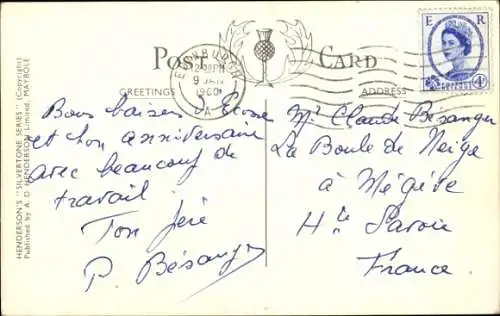 POST CARD
GREETINGS
ADDRESS
HENDERSON'S "SILVERTONE SERIES" (Copyright)
Published by A. D. HENDERSON Limited, MAYBOLE
EDINBURGH
9 JAN
1960
E R
4D
Bons baisers d'Ecosse
et bon anniversaire
avec beaucoup de
travail.
Ton
P. Bésanger
Mr Claude Bésanger
La Boule de Neige
à Mégève
Hte Savoie
France.